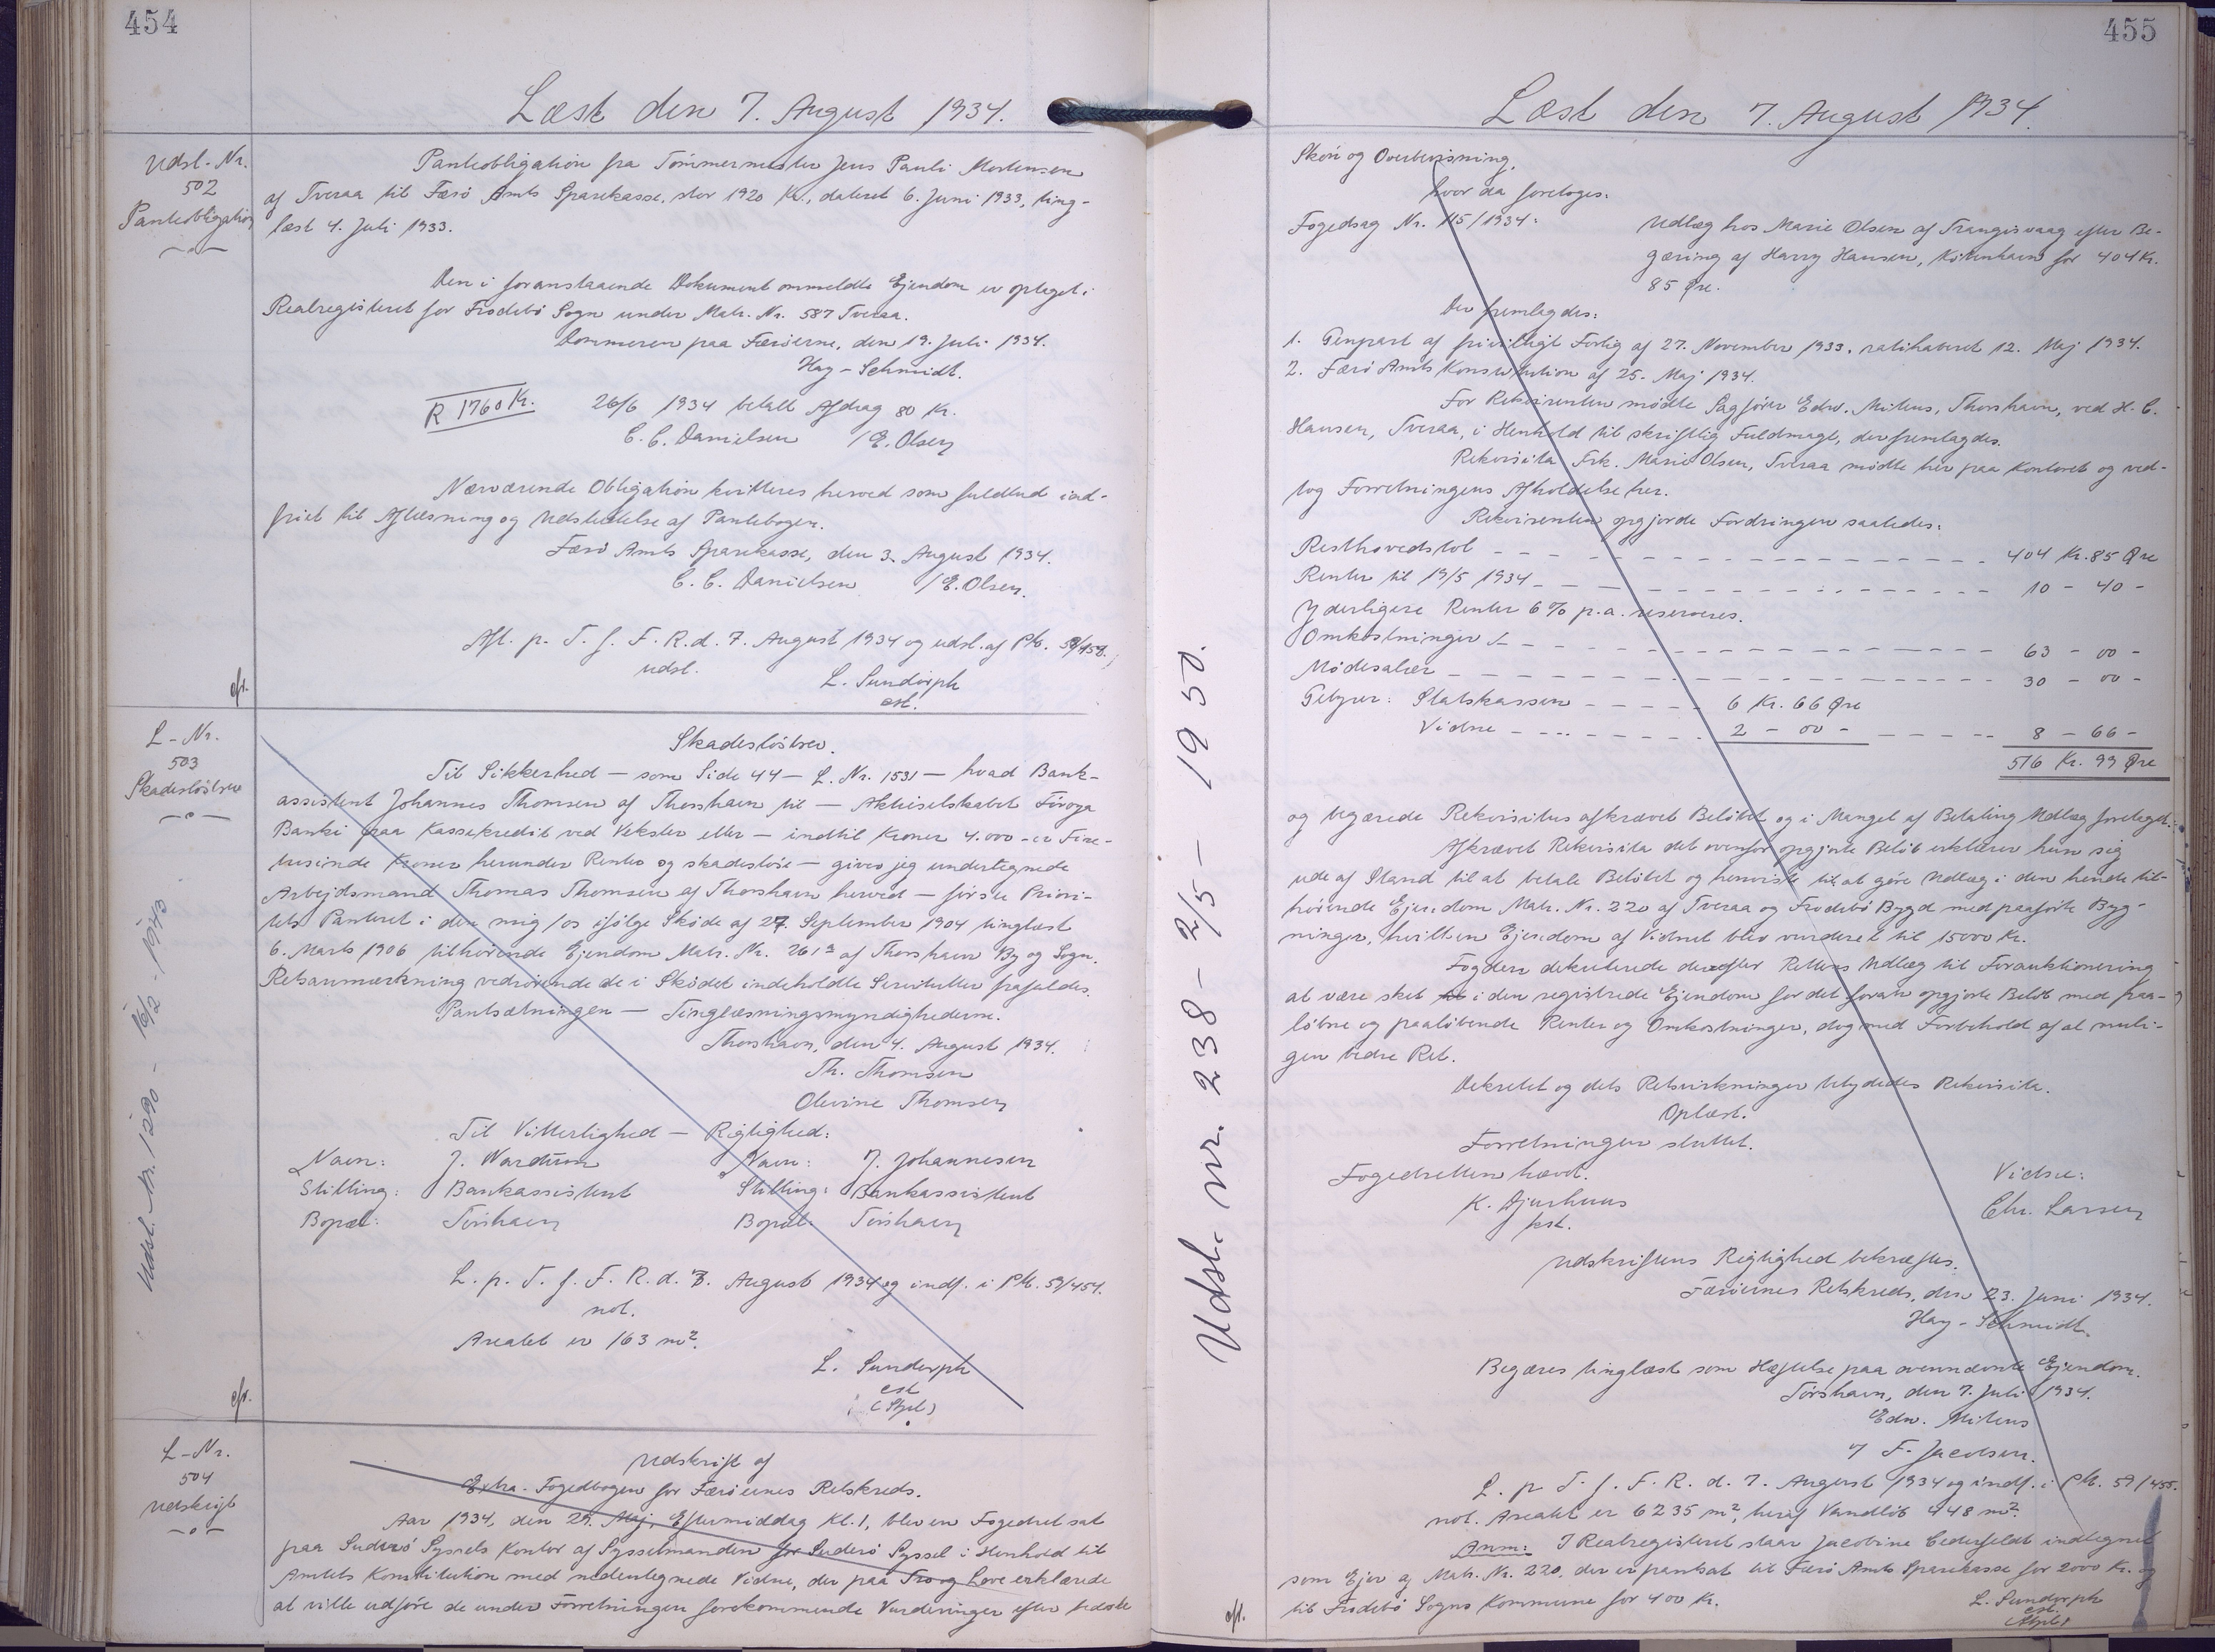 454
Læst den 7. August 1934.
Udsl.-Nr.
502
Panteobligation
Panteobligation fra Tømmermester Jens Pauli Mortensen
af Tveraa til Færø Amts Sparekasse, stor 1920 Kr., dateret 6. Juni 1933, ting-
læst 4. Juli 1933.
Den i foranstaaende Dokument ommeldte Ejendom er optaget i
Realregisteret for Frodebø Sogn under Matr. Nr. 587 Tveraa.
Dommeren paa Færøerne, den 19. Juli 1934.
Hay-Schmidt.
R 1760 Kr. 26/6 1934 betalt Afdrag 80 Kr.
C. C. Danielsen /E. Olsen
Nærværende Obligation kvitteres herved som fuldtud ind-
friet til Aflæsning og Udslettelse af Pantebogen.
Færø Amts Sparekasse, den 3. August 1934.
C. C. Danielsen /E. Olsen.
Afl. p. T. f. F. R. d. 7. August 1934 og udsl. af Ptb.
udsl.
L. Sundorph
cst.
L-Nr.
503
Skadesløsbrev
Skadesløsbrev.
Til Sikkerhed — som Side 44 — L. Nr. 1531 — hvad Bank-
assistent Johannes Thomsen af Thorshavn til — Aktieselskabet Føroya
Banki paa Kassekredit ved Veksler eller — indtil Kroner 4.000 - er Fire-
tusinde Kroner herunder Renter og skadesløse — giver jeg undertegnede
Arbejdsmand Thomas Thomsen af Thorshavn herved — første Priori-
tets Panteret i den mig/os ifølge Skøde af 27. September 1904 tinglæst
6. Marts 1906 tilhørende Ejendom Matr. Nr. 261ᵃ af Thorshavn By og Sogn.
Retsanmærkning vedrørende de i Skødet indeholdte Servitutter frafaldes.
Pantsætningen — Tinglæsningsmyndighederne.
Thorshavn, den 4. August 1934.
Th. Thomsen
Olevine Thomsen
Til Vitterlighed — Rigtighed:
Navn: J. Wardum Navn: J. Johannesen
Stilling: Bankassistent Stilling: Bankassistent
Bopæl: Tórshavn Bopæl: Tórshavn
L. p. T. f. F. R. d. 7. August 1934 og indf. i Ptb. 59/454.
not.
Arealet er 163 m².
L. Sundorph
cst
(Stpl)
Udsl. Nr. 1290 - 16/2 - 1943
L-Nr.
504
Udskrift
Udskrift af
Extra-Fogedbogen for Færøernes Retskreds.
Aar 1934, den 29. Maj, Eftermiddag Kl. 1, blev en Fogedret sat
paa Suderø Syssels Kontor af Sysselmanden for Suderø Syssel i Henhold til
Amtets Konstitution med nedentegnede Vidne, der paa Tro og Love erklærede
at ville udføre de under Forretningen forekommende Vurderinger efter bedste
455
Læst den 7. August 1934.
Udsl. nr. 238 - 2/5 - 1950.
Skøn og Overbevisning.
hvor da foretoges:
Fogedsag Nr. 115/1934: Udlæg hos Marie Olsen af Trangisvaag efter Be-
gæring af Harry Hansen, København for 404 Kr.
85 Øre.
Der fremlagdes:
1. Genpart af frivilligt Forlig af 27. November 1933, ratihaberet 12. Maj 1934.
2. Færø Amts Konstitution af 25. Maj 1934.
For Rekvirenten mødte Sagfører Edw. Mitens, Thorshavn, ved H. C.
Hansen, Tveraa, i Henhold til skriftlig Fuldmagt, der fremlagdes.
Rekvisita Frk. Marie Olsen, Tveraa mødte her paa Kontoret og ved-
tog Forretningens Afholdelse her.
Rekvirenten opgjorde Fordringen saaledes:
Resthovedstol 404 Kr. 85 Øre
Renter til 19/5 1934 10 - 40 -
Yderligere Renter 6% p.a. reserveres.
Omkostninger 63 - 00 -
Mødesalær 30 - 00 -
Gebyrer: Statskassen 6 Kr. 66 Øre
Vidne 2 - 00 - 8 - 66 -
516 Kr. 99 Øre
og begærede Rekvisitus afkrævet Beløbet og i Mangel af Betaling Udlæg foretaget.
Afkrævet Rekvisita det ovenfor opgjorte Beløb erklærer hun sig
ude af Stand til at betale Beløbet og henviste til at gøre Udlæg i den hende til-
hørende Ejendom Matr. Nr. 220 af Tveraa og Frodebø Bygd med paastaaende Byg-
ninger, hvilken Ejendom af Vidnet blev vurderet til 15000 Kr.
Fogden dekreterede derefter Rettens Udlæg til Forauktionering
at være sket i den registrede Ejendom for det foran opgjorte Beløb med paa-
løbne og paaløbende Renter og Omkostninger, dog med Forbehold af al muli-
gen bedre Ret.
Dekretet og dets Retsvirkninger betydedes Rekvisita.
Oplæst.
Forretningen sluttet.
Fogedretten hævet.
Vidne:
K. Djurhuus
kst.
Chr. Larsen
Udskriftens Rigtighed bekræftes.
Færøernes Retskreds, den 23. Juni 1934.
Hay-Schmidt.
Begæres tinglæst som Hæftelse paa ovennævnte Ejendom.
Tórshavn, den 7. Juli 1934.
Edw. Mitens
v/ F. Jacobsen.
L. p. T. f. F. R. d. 7. August 1934 og indf. i Ptb. 59/455.
not. Arealet er 6235 m², heraf Vandløb 448 m².
Anm: I Realregisteret staar Jacobine Cederfeldt indtegnet
som Ejer af Matr. Nr. 220, der er pantsat til Færø Amts Sparekasse for 2000 Kr. og
til Frodebø Sogns Kommune for 400 Kr.
L. Sundorph
cst.
(Stpl)